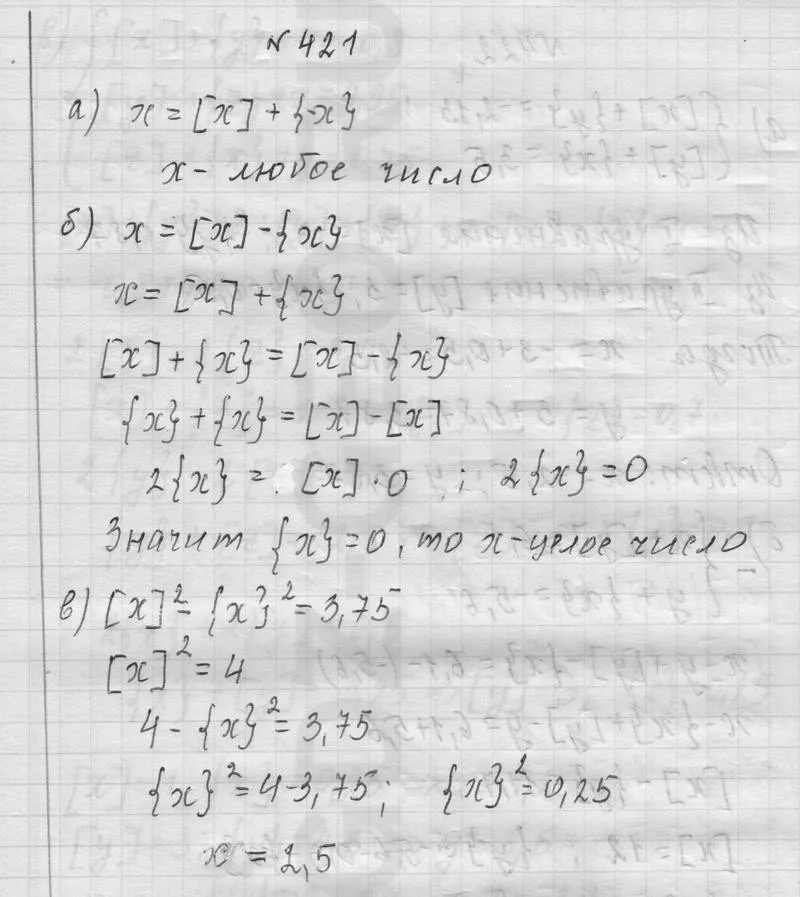 № 421
а) x = [x] + {x}
x - любое число
б) x = [x] - {x}
x = [x] + {x}
[x] + {x} = [x] - {x}
{x} + {x} = [x] - [x]
2{x} = [x] · 0 ; 2{x} = 0
Значит {x} = 0, то x - целое число
в) [x]² - {x}² = 3,75
[x]² = 4
4 - {x}² = 3,75
{x}² = 4 - 3,75; {x}² = 0,25
x = 2,5